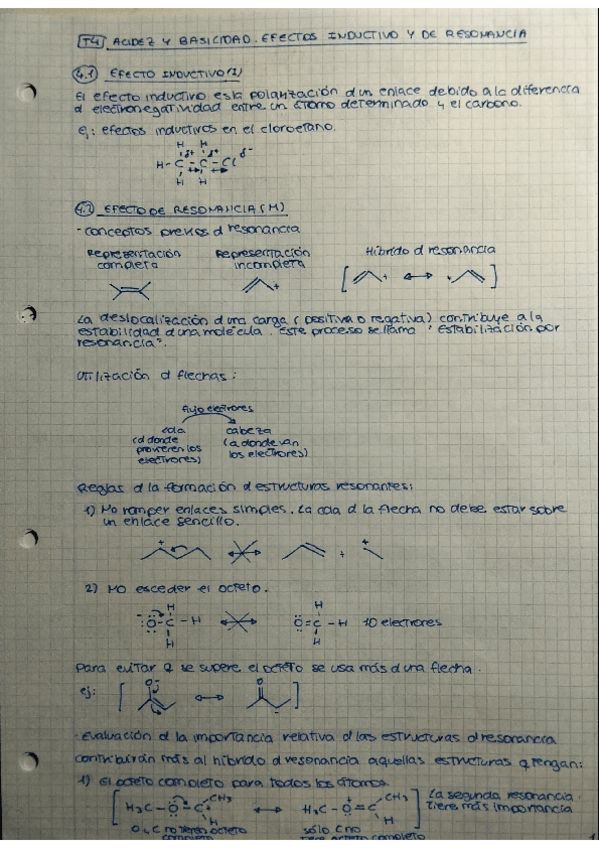 T4 ACIDEZ Y BASICIDAD. EFECTOS INDUCTIVO Y DE RESONANCIA
4.1) EFECTO INDUCTIVO (I)
El efecto inductivo es la polarización d un enlace debido a la diferencia
d electronegatividad entre un átomo determinado y el carbono.
ej: efectos inductivos en el cloroetano.
H H
H - C - C - Cl δ-
H H
4.2 EFECTO DE RESONANCIA (M)
- Conceptos previos d resonancia
Representación Representación Híbrido d resonancia
completa incompleta
La deslocalización d una carga (positiva o negativa) contribuye a la
estabilidad d una molécula. Este proceso se llama "estabilización por
resonancia".
Utilización d flechas:
flujo electrones
cola cabeza
(d donde (a donde van
provienen los los electrones)
electrones)
Reglas d la formación d estructuras resonantes:
1) No romper enlaces simples. La cola d la flecha no debe estar sobre
un enlace sencillo.
2) No esceder el octeto.
H H
:O - C - H O = C - H 10 electrones
H H
Para evitar q se supere el octeto se usa más d una flecha.
ej:
- Evaluación d la importancia relativa d las estructuras d resonancia
contribuirán más al híbrido d resonancia aquellas estructuras q tengan:
1) El octeto completo para todos los átomos.
H3C - O = C CH3 H3C - O = C CH3 La segunda resonancia
H H tiene más importancia
O y C no tienen octeto sólo C no
completo tiene octeto completo